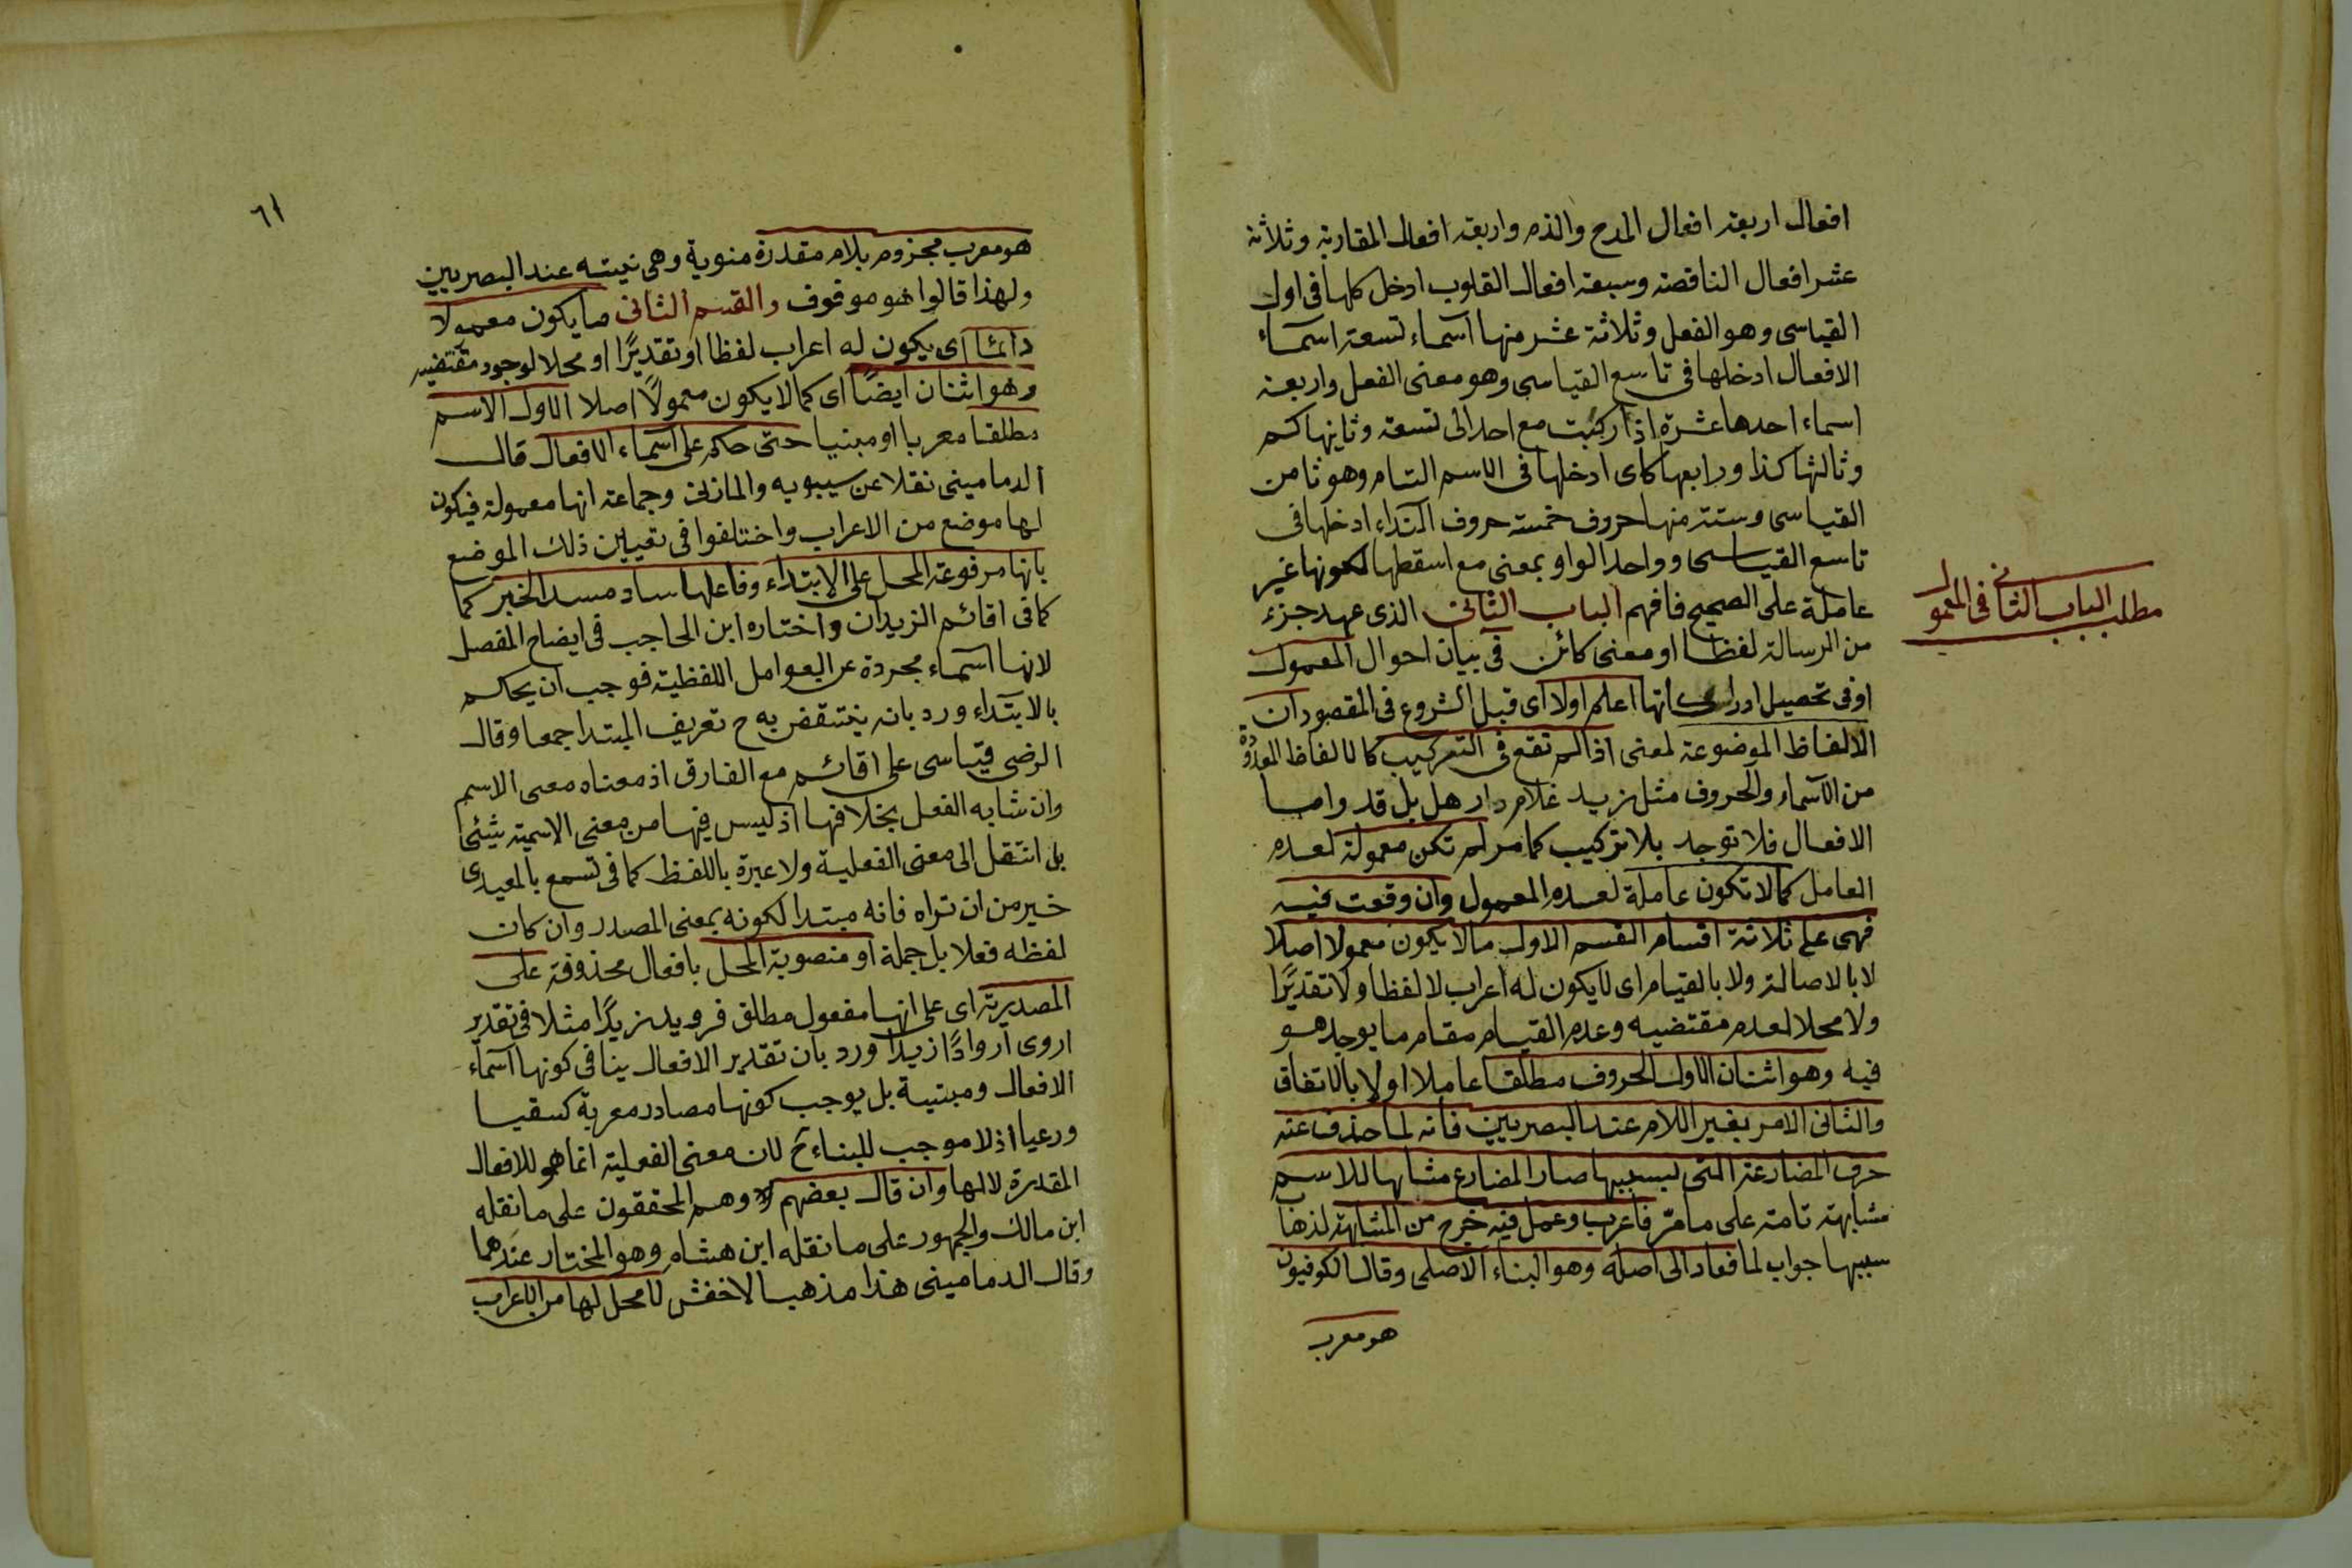 افعال اربعة افعال المدح والذم واربعة افعال المقاربة وثلاثة
عشر افعال الناقصة وسبعة افعال القلوب ادخل كلها فى اول
القياسى وهو الفعل وثلاثة عشر منها اسماء تسعة اسماء
الافعال ادخلها فى تاسع القياسى وهو معنى الفعل واربعة
اسماء احدها عشرة اذا ركبت مع احد الى تسعة وثانيها كم
وثالثها كذا ورابعها كاى ادخلها فى الاسم التام وهو ثامن
القياسى وستة منها حروف خمسة حروف النداء ادخلها فى
تاسع القياسى وواحد الواو بمعنى مع اسقطها لكونها غير
عاملة على الصحيح فافهم الباب الثانى الذى عهد جزء
مطلب الباب الثانى فى المعمول
من الرسالة لفظا او معنى كائن فى بيان احوال المعمول
او فى تحصيل ادراكاتها اعلم اولا اى قبل الشروع فى المقصود ان
الالفاظ الموضوعة لمعنى اذا لم تقع فى التركيب كالالفاظ المعدودة
من الاسماء والحروف مثل زيد غلام دار هل بل قد واما
الافعال فلا توجد بلا تركيب كما مر لم تكن معمولة لعدم
العامل كما لا تكون عاملة لعدم المعمول وان وقعت فيه
فهى على ثلاثة اقسام القسم الاول ما لا يكون معمولا اصلا
لا بالاصالة ولا بالقيام اى لا يكون له اعراب لا لفظا ولا تقديرًا
ولا محلا لعدم مقتضيه وعدم القيام مقام ما يوجد هو
فيه وهو اثنان الاول الحروف مطلقا عاملا اولا بالاتفاق
والثانى الامر بغير اللام عند البصريين فانه لما حذف عنه
حرف المضارعة التى بسببها صار المضارع مشابها للاسم
مشابهة تامة على ما مرّ فاعرب وعمل فيه خرج من المشابهة لذهاب
سببها جواب لما فعاد الى اصله وهو البناء الاصلى وقال الكوفيون
هو معرب
٦١
هو معرب مجزوم بلام مقدرة منوية وهى نيته عند البصريين
ولهذا قالوا هو موقوف والقسم الثانى ما يكون معمولا
دائما اى يكون له اعراب لفظا او تقديرًا او محلا لوجود مقتضيه
وهو اثنان ايضًا اى كما لا يكون معمولًا اصلا الاول الاسم
مطلقا معربا او مبنيا حتى حكم على اسماء الافعال قال
الدمامينى نقلا عن سيبويه والمازنى وجماعة انها معمولة فيكون
لها موضع من الاعراب واختلفوا فى تعيين ذلك الموضع
بانها مرفوعة المحل على الابتداء وفاعلها ساد مسد الخبر كما
كما فى اقائم الزيدان واختاره ابن الحاجب فى ايضاح المفصل
لانها اسماء مجردة عن العوامل اللفظية فوجب ان يحكم
بالابتداء ورد بانه ينتقض به ح تعريف المبتدا جمعا وقال
الرضى قياسى على اقائم مع الفارق اذ معناه معنى الاسم
وان شابه الفعل بخلافها اذ ليس فيها من معنى الاسمية شيئى
بل انتقل الى معنى الفعلية ولا عبرة باللفظ كما فى تسمع بالمعيدى
خير من ان تراه فانه مبتدا لكونه بمعنى المصدر وان كان
لفظه فعلا بل جملة او منصوبة المحل بافعال محذوفة على
المصدرية اى على انها مفعول مطلق فرويد زيدًا مثلا فى تقدير
اروى اروادًا زيدا ورد بان تقدير الافعال ينافى كونها اسماء
الافعال ومبنية بل يوجب كونها مصادر معربة كسقيا
ورعيا اذ لا موجب للبناء ح لان معنى الفعلية انما هو للافعال
المقدرة لا لها وان قال بعضهم وهم المحققون على ما نقله
ابن مالك والجمهور على ما نقله ابن هشام وهو المختار عندهما
وقال الدمامينى هذا مذهب الاخفش لا محل لها من الاعراب